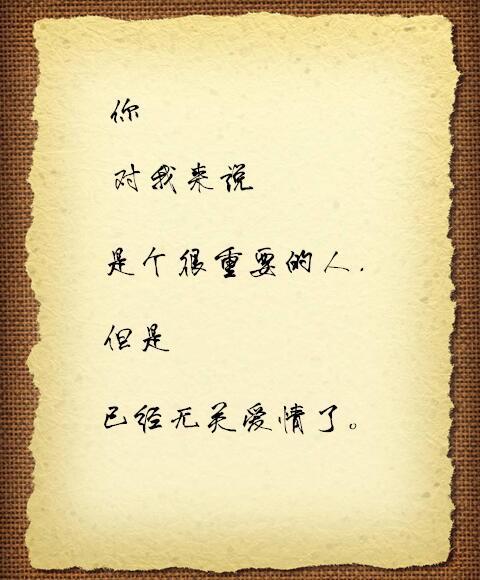 你
对我来说
是个很重要的人，
但是
已经无关爱情了。